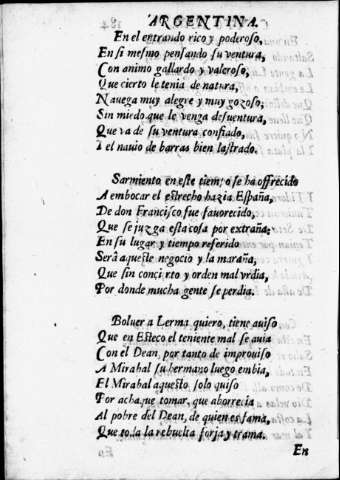 ARGENTINA.
En el entrando rico y poderoso,
En si mesmo pensando su ventura,
Con animo gallardo y valeroso,
Que cierto le tenia de natura,
Nauega muy alegre y muy gozoso;
Sin miedo que le venga desuentura,
Que va de su ventura confiado,
I el nauio de barras bien lastrado.
Sarmiento en este tiempo se ha offrecido
A embocar el estrecho hazia España,
De don Francisco fue fauorecido,
Que se juzga esta cosa por extraña:
En su lugar y tiempo referido
Será aqueste negocio y la maraña,
Que sin concierto y orden mal vrdia,
Por donde mucha gente se perdia.
Boluer a Lerma quiero, tiene auiso
Que en Esteco el teniente mal se auia
Con el Dean, por tanto de improuiso
A Mirabal su hermano luego embia,
El Mirabal aquesto solo quiso
Por achaque tomar, que aborrecia
Al pobre del Dean, de quien es fama,
Que toda la rebuelta forja y trama.
En